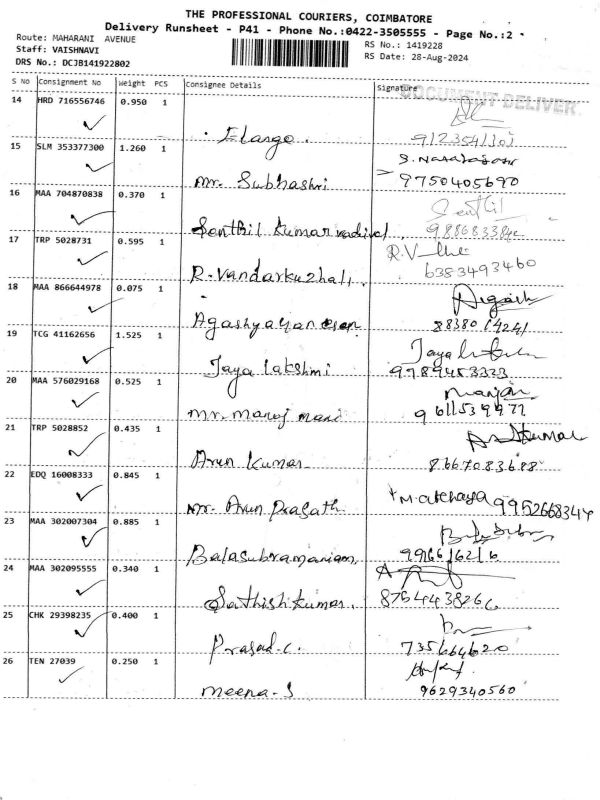 THE PROFESSIONAL COURIERS, COIMBATORE
Delivery Runsheet - P41 - Phone No.:0422-3505555 - Page No.:2
Route: MAHARANI AVENUE
Staff: VAISHNAVI
DRS No.: DCJB141922802
RS No.: 1419228
RS Date: 28-Aug-2024
S No Consignment No Weight PCS Consignee Details Signature
DOCUMENT DELIVER
14 HRD 716556746 0.950 1
Elango
15 SLM 353377300 1.260 1
Mr. Subhashri 9750405690
16 MAA 704870838 0.370 1 Senthil
Senthil Kumar vadivel
17 TRP 5028731 0.595 1 R.V
R. Vandarkuzhali 6383493460
18 MAA 866644978 0.075 1
19 TCG 41162656 1.525 1
Jaya lakshmi 9789453333
20 MAA 576029168 0.525 1
Mr. Manoj mani
21 TRP 5028852 0.435 1
Arun Kumar 8667083688
22 EDQ 16008333 0.845 1
Mr. Arun Prasath 9952668344
23 MAA 302007304 0.885 1
Balasubramaniam
24 MAA 302095555 0.340 1
Sathish kumar
25 CHK 29398235 0.400 1
Prasad.C 735664620
26 TEN 27039 0.250 1
Meena-S 9629340560